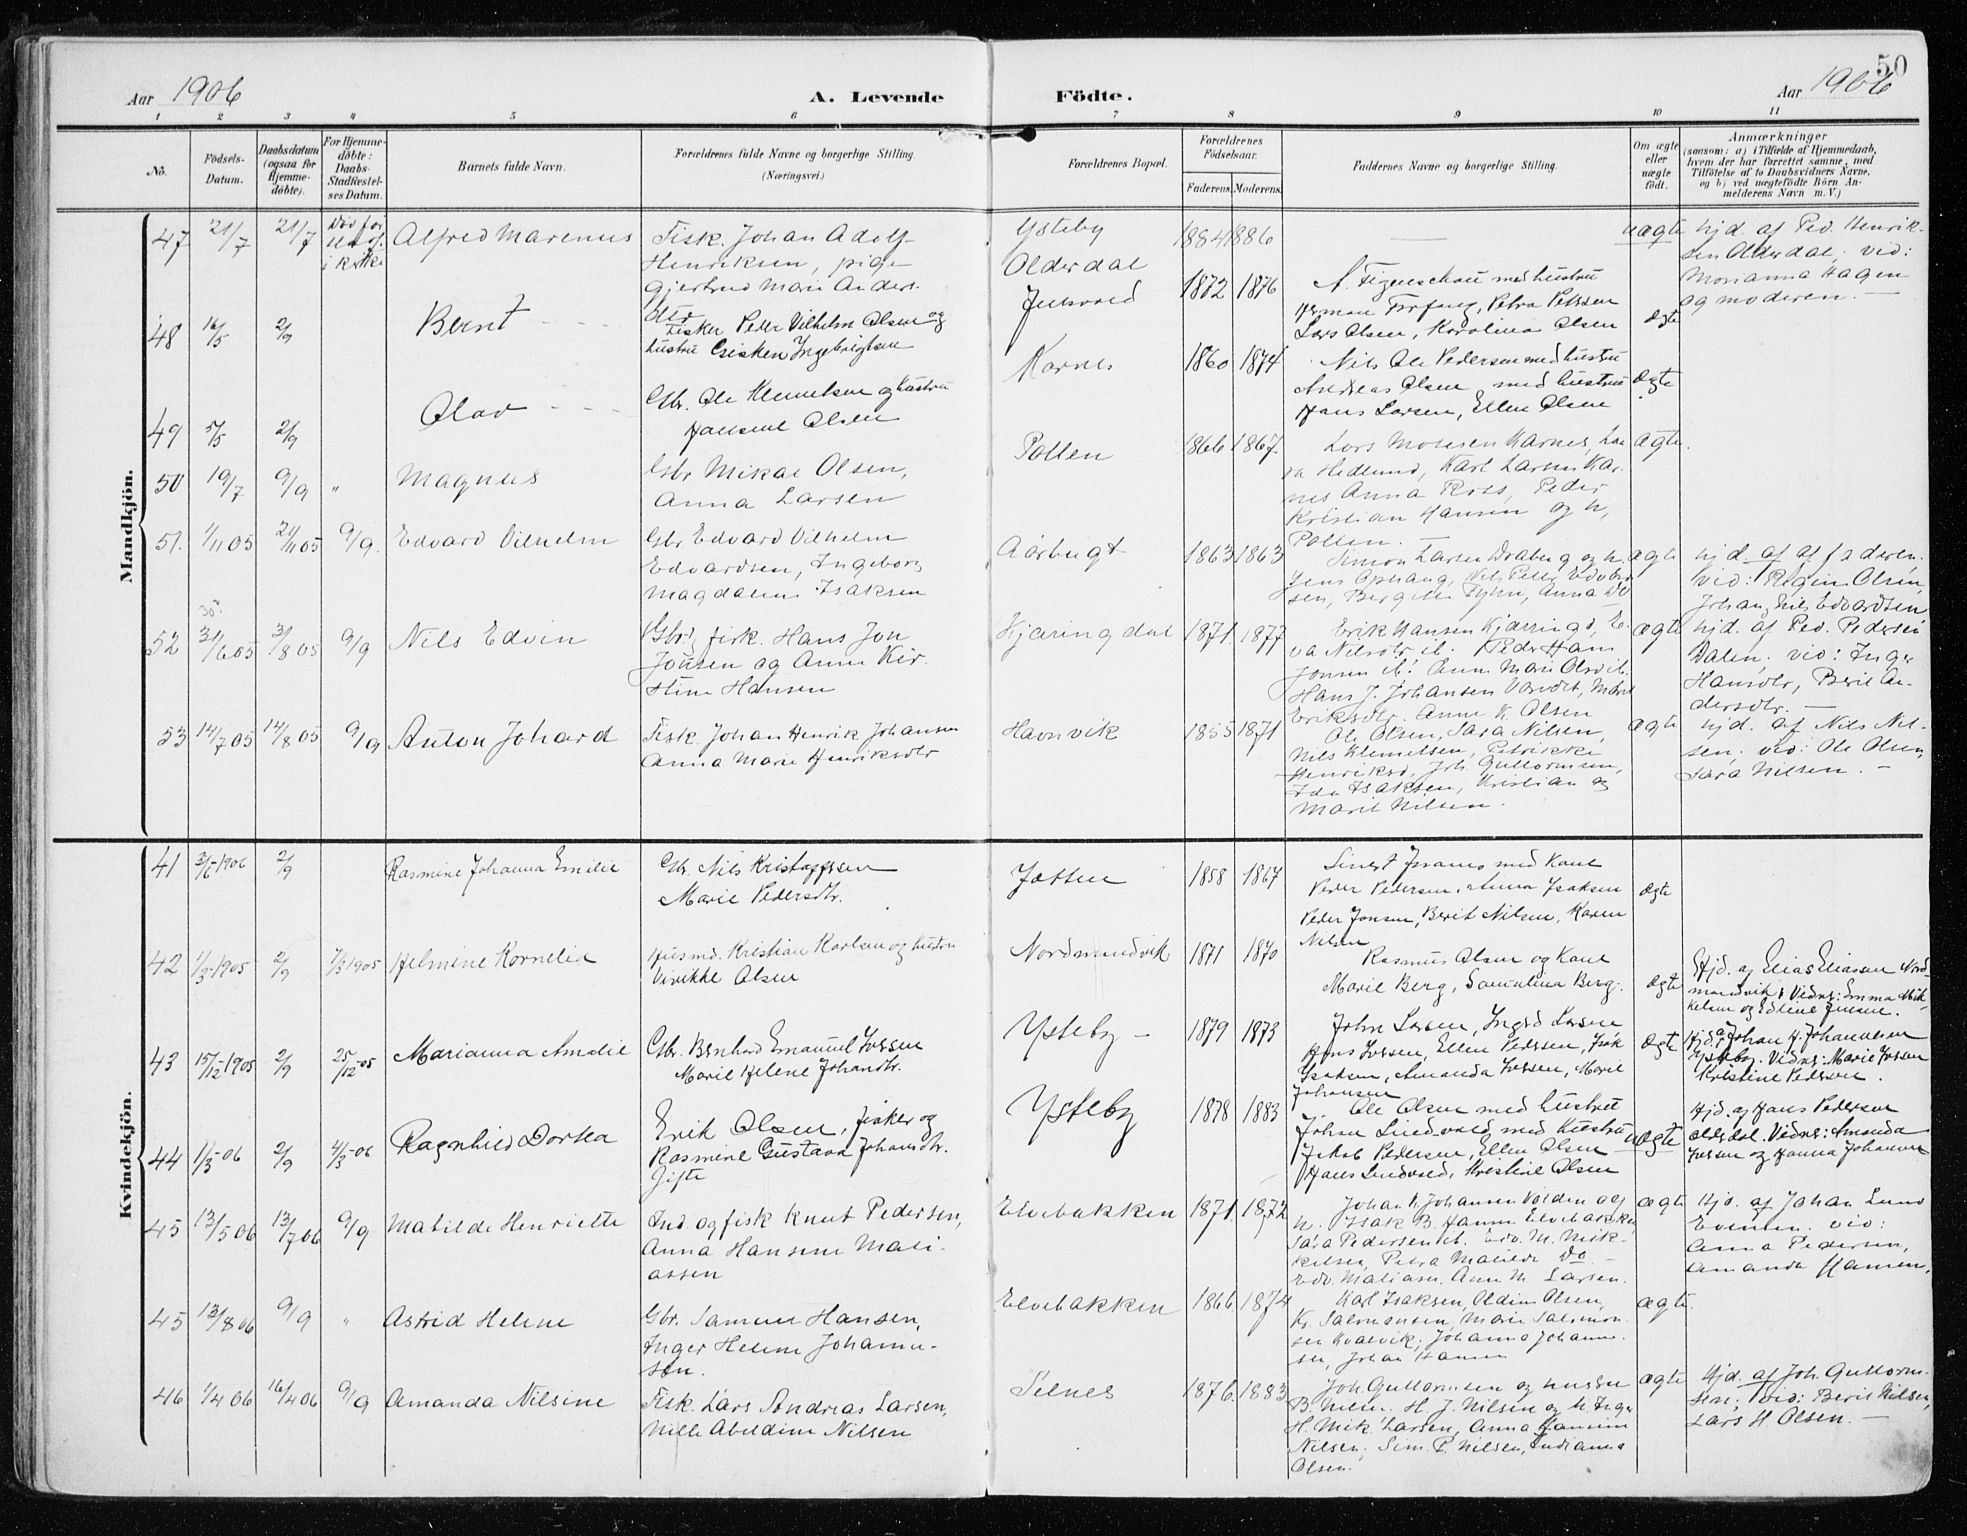 50
Aar 1906
A. Levende
Födte.
Aar 1906
1 2 3 4 5 6 7 8 9 10 11
No.
Födsels-Datum.
Daabsdatum (ogsaa for Hjemme-döbte).
For Hjemme-döbte: Daabs-Stadfæstel-ses Datum.
Barnets fulde Navn.
Forældrenes fulde Navne og borgerlige Stilling. (Næringsvei.)
Forældrenes Bopæl.
Forældrenes Födselsaar.
Faderens. Moderens.
Faddernes Navne og borgerlige Stilling.
Om ægte eller uægte födt.
Anmærkninger
(saasom: a) i Tilfælde af Hjemmedaab, hvem der har forrettet samme, med Tilföielse af to Daabsvidners Navne, og b) ved uægtefödte Börn An-melderens Navn m. V.)
Mandkjön.
47 21/7 21/7 Død før
Alfred Marenius
Fisk. Johan Adolf
Henriksen, pige
Gjertrud Marie Anders.
dtr
Ysteby
Olderdal
1884 1886
uægte
hjd. af Ped. Henrik-
sen Olderdal; vid:
Morianna Hagen
og moderen. —
48 16/5 2/9
Bernt
Fisker Peder Vilhelm Olsen og
hustru Ingebrigtsen
1872 1876
A. Figenschau med hustru
Herman Forfang, Petra Petersen
Lars Olsen, Karolina Olsen
ægte
49 5/5 2/9
Olav
Gbr. Ole Klemetsen og hustru
Hansine Olsen
Karnes
1860 1874
Nils Ole Pedersen med hustru
Andreas Olsen med hustru
Hans Larsen, Ellen Olsen
ægte
50 19/7 9/9 "
Magnus
Gbr Mikal Olsen,
Anna Larsen
Pollen
1866 1867.
Lars Mosesen Karnes, Lau
ra Hedlund, Karl Larsen Kar.
nes Anna Ross, Peder
Kristian Hansen og h,
Pollen. —
ægte.
51. 1/11 05 21/11 05 9/9.
Edvard Vilhelm
Gbr Edvard Vilhelm
Edvardsen, Ingeborg
Magdalene Isaksen
Aarbugt
1863 1863
Simon Larsen Draabug og h.
Jens Ophaug, Nils Peter Edvard
sen, Bergitte Fyhn, Anna Do
ægte
hjd. af af faderen.
vid: Regine Olsen,
Johan Nils Edvardsen
52 31/6 05 3/8 05 9/9
Nils Edvin
Gbr., fisk. Hans Jon
Jonsen og Anne Kir.
stine Hansen
Hjæringdal
1871. 1877
Erik Hansen Kjærringd, E.
va Nilsdtr ib. Peder Hans
Jonsen ib. Ann Marie Olsd ib.
Hans J. Johansen
Eriksdtr. Anne K. Olsen
ægte
hjd. af Ped. Pedersen
Dalen; vid: Inger
Hansdtr, Berit An-
dersdtr. —
53 14/7 05 14/8 05 9/9
Anton Johard
Fisk. Johan Henrik Johansen
Anna Marie Henriksdtr
Havnvik
1855 1871
Ole Olsen, Sara Nilsen,
Nils Klemetsen, Petrikke
Henriksd, Joh. Guttormsen,
Ida Isaksen, Kristian og
Marit Nilsen.
ægte
hjd. af Nils Nil-
sen; vid: Ole Olsen,
Sara Nilsen. —
Kvindekjön.
41 3/6-1906 2/9
Rasmine Johanna Emilie
Gbr. Nils Kristoffersen
Marie Pedersdtr.
1858 1867
Peder Pedersen, Anna Isaksen
Peder Jonsen, Berit Nilsen, Karen
Nilsen
ægte
42 1/3-1905 2/9 7/3 1905
Helmine Kornelia
Husmd. Kristian Karlsen og hustru
Vivikke Olsen
Nordmandvik
1871 1870
Rasmus Olsen og Kone
Marie Berg, Samuline Berg.
ægte
Hjd. af Elias Eliassen Nord-
mandvik. Vidner: Emma Mik-
kelsen og Edline Jensen.
43 15/12-1905 2/9 25/12-05
Marianna Amalie
Gbr. Bernhard Emanuel Iversen
Marie Helene Johansdtr.
Ysteby —
1879 1873
John Larsen, Ingrd Larsen
Hans Iversen, Ellen Pedersen, Isak
Isaksen, Amanda Iversen, Marie
Johansen
ægte
Hjd. af Johan H. Johannesen
Ysteby. Vidner: Marie Iversen
Kristine Pedersen.
44 1/3-06 2/9 4/3-06
Ragnhild Dortea
Erik Olsen, fisker og
Rasmine Gustava Johansdtr.
Gifte
Ysteby
1878 1883
Ole Olsen med hustru
Johan Lindvald med hustru
Jakob Pedersen, Ellen Olsen
Hans Lindvald, Kristine Olsen
uægte
Hjd. af Hans Pedersen
Olderdal. Vidner: Amanda
Iversen og Hanna Johansen
45 13/5 06 13/7 06 9/9
Matilde Henriette
Ind. og fisk Knut Pedersen,
Anna Hansine Mati-
assen
Elvebakken
1871. 1872
Johan K. Johansen Volden og
h. Isak B. Hansen Elvebakk.
Sara Pedersen ib. Edv. M. Mik-
kelsen, Petra Matilde Do —
Edv. Matiasen, Ann M. Larsen.
ægte
Hjd. af Johan Lund
Evensen. vid:
Anna Pedersen,
Amanda Hansen.
45 13/8 06 9/9 "
Astrid Helene
Gbr. Samuel Hansen,
Inger Helene Johanne-
sen.
Elvebakken
1866. 1874
Karl Isaksen, Oldine Olsen,
Kr. Salmonsen, Marie Salomon-
sen Kvalvik, Johanna Johanne-
sen, Johan Hansen
ægte.
46 1/4 06 16/4 06 9/9
Amanda Nilsine
Fisk. Lars Andreas Larsen,
Nille Abeldine Nilsen
Selnes
1876. 1883
Joh. Guttormsen og hustru
B. Nilsen. H. J. Nilsen og h. Inger
H. Mik. Larsen, Anna Hansine
Nilsen, Sim. P. Nilsen, Indianna
Olsen.
ægte
Hjd. af Joh. Guttorm-
sen; vid: Berit Nilsen,
Lars H Olsen. —